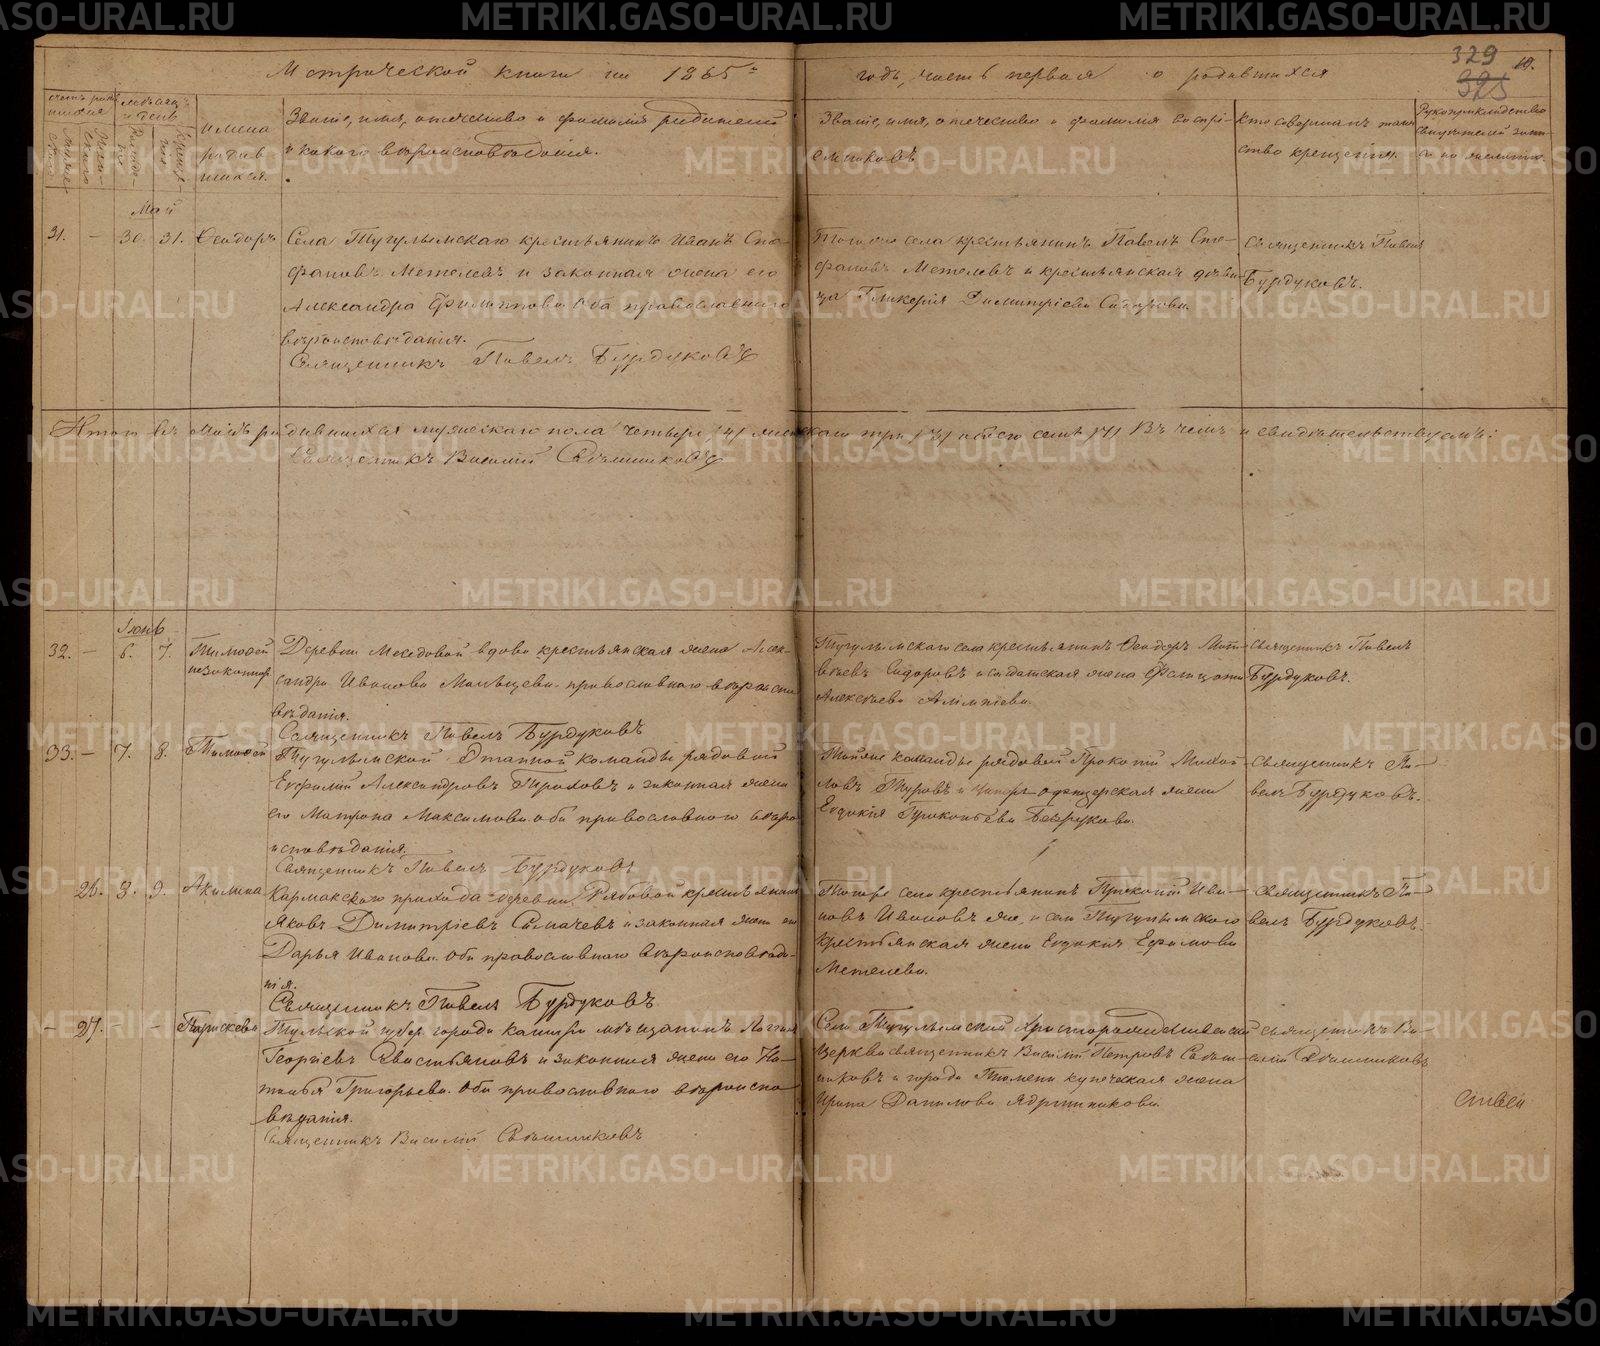 Метрической книги на 1865й
годъ, часть первая о родившихся
329
325
19.
Счетъ родившихся
Мужескаго
Женскаго
Месяцъ и день
Рожденія
Крещенія
Имена родившихся.
Званіе, имя, отечество и фамилія родителей
и какого вероисповеданія.
Званіе, имя, отечество и фамилія воспрі-
емниковъ
Кто совершалъ таин-
ство крещенія.
Рукоприкладство
свидетелей записи
по желанію.
Май
31. — 30. 31. Ѳеодоръ
Села Тугулымскаго крестьянинъ Иванъ Сте-
фановъ Метелевъ и законная жена его
Александра Филиппова оба православнаго
вероисповеданія.
Священникъ Павелъ Бурдуковъ
Того же села крестьянинъ Павелъ Сте-
фановъ Метелевъ и крестьянская деви-
ца Гликерія Димитріева Сидорова.
Священникъ Павелъ
Бурдуковъ.
Итого въ Мае родившихся мужескаго пола четыре /4/ женскаго три /3/ обоего семь /7/ Въ чемъ и свидетельствуемъ:
Священникъ Василій
Іюнь
32. — 6. 7. Тимофей
незаконнор.
Деревни вдова крестьянская жена Алек-
сандра Иванова Мальцева православнаго вероиспо-
веданія.
Священникъ Павелъ Бурдуковъ
Тугулымскаго села крестьянинъ Ѳеодоръ Мат-
веевъ Сидоровъ и солдатская жена
Алексеева
Священникъ Павелъ
Бурдуковъ.
33. — 7. 8. Тимофей
Тугулымской Этапной команды рядовой
Евфимій Александровъ и законная жена
его Матрона Максимова оба православнаго веро-
исповеданія.
Священникъ Павелъ Бурдуковъ
Тойже команды рядовой Прокопій Михай-
ловъ Туровъ и унтеръ-офицерская жена
Евдокія Прокопьева
Священникъ Па-
велъ Бурдуковъ.
26. 8. 9. Акилина
Кармакскаго прихода деревни Рябовой крестьянинъ
Яковъ Димитріевъ и законная жена его
Дарья Иванова оба православнаго вероисповеда-
нія.
Священникъ Павелъ Бурдуковъ
Тогоже села крестьянинъ Прокопій Ива-
новъ Ивановъ же, и села Тугулымскаго
крестьянская жена Евдокія Ефимова
Метелева.
Священникъ Па-
велъ Бурдуковъ.
— 27. — — Параскева
Тульской губер. города Каширы мещанинъ
Георгіевъ и законная жена его На-
талья Григорьева оба православнаго вероиспо-
веданія.
Священникъ Василій
Села Тугулымской Христорождественской
церкви священникъ Василій Петровъ
и города Тюмени купеческая жена
Ирина Данилова Ядрышникова.
Священникъ Ва-
силій
METRIKI.GASO-URAL.RU